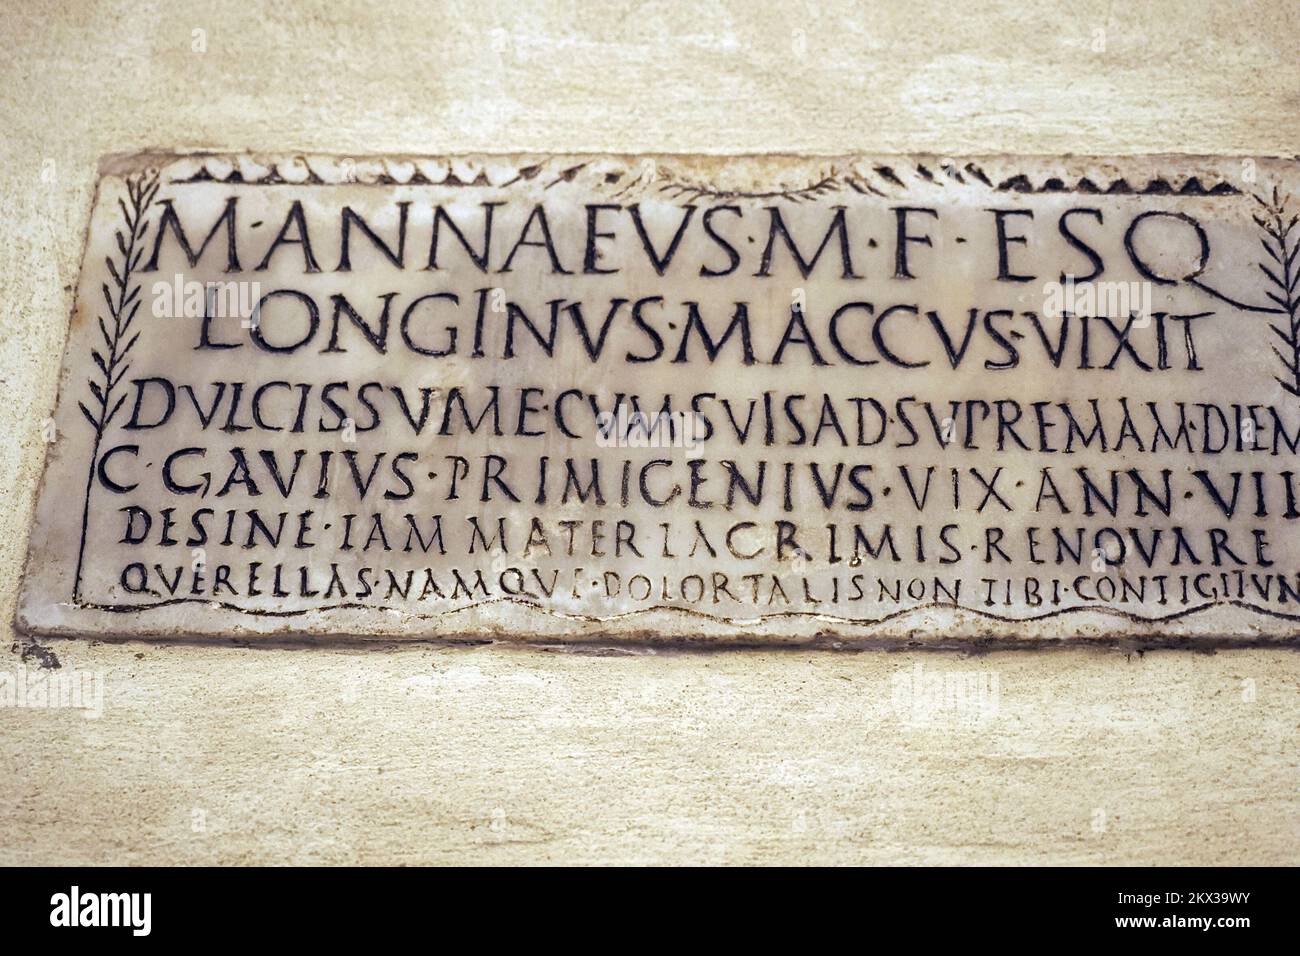 M·ANNAEVS·M·F·ESQ
LONGINVS·MACCVS·VIXIT
DVLCISSVME·CVM·SVISAD·SVPREMAM·DIEM
C·GAVIVS·PRIMIGENIVS·VIX·ANN·VII
DESINE·IAM MATER LACRIMIS·RENOVARE
QVERELLAS·NAMQVE·DOLOR TALIS NON TIBI·CONTIGIT VN
alamy
Image ID: 2KX39WY
www.alamy.com